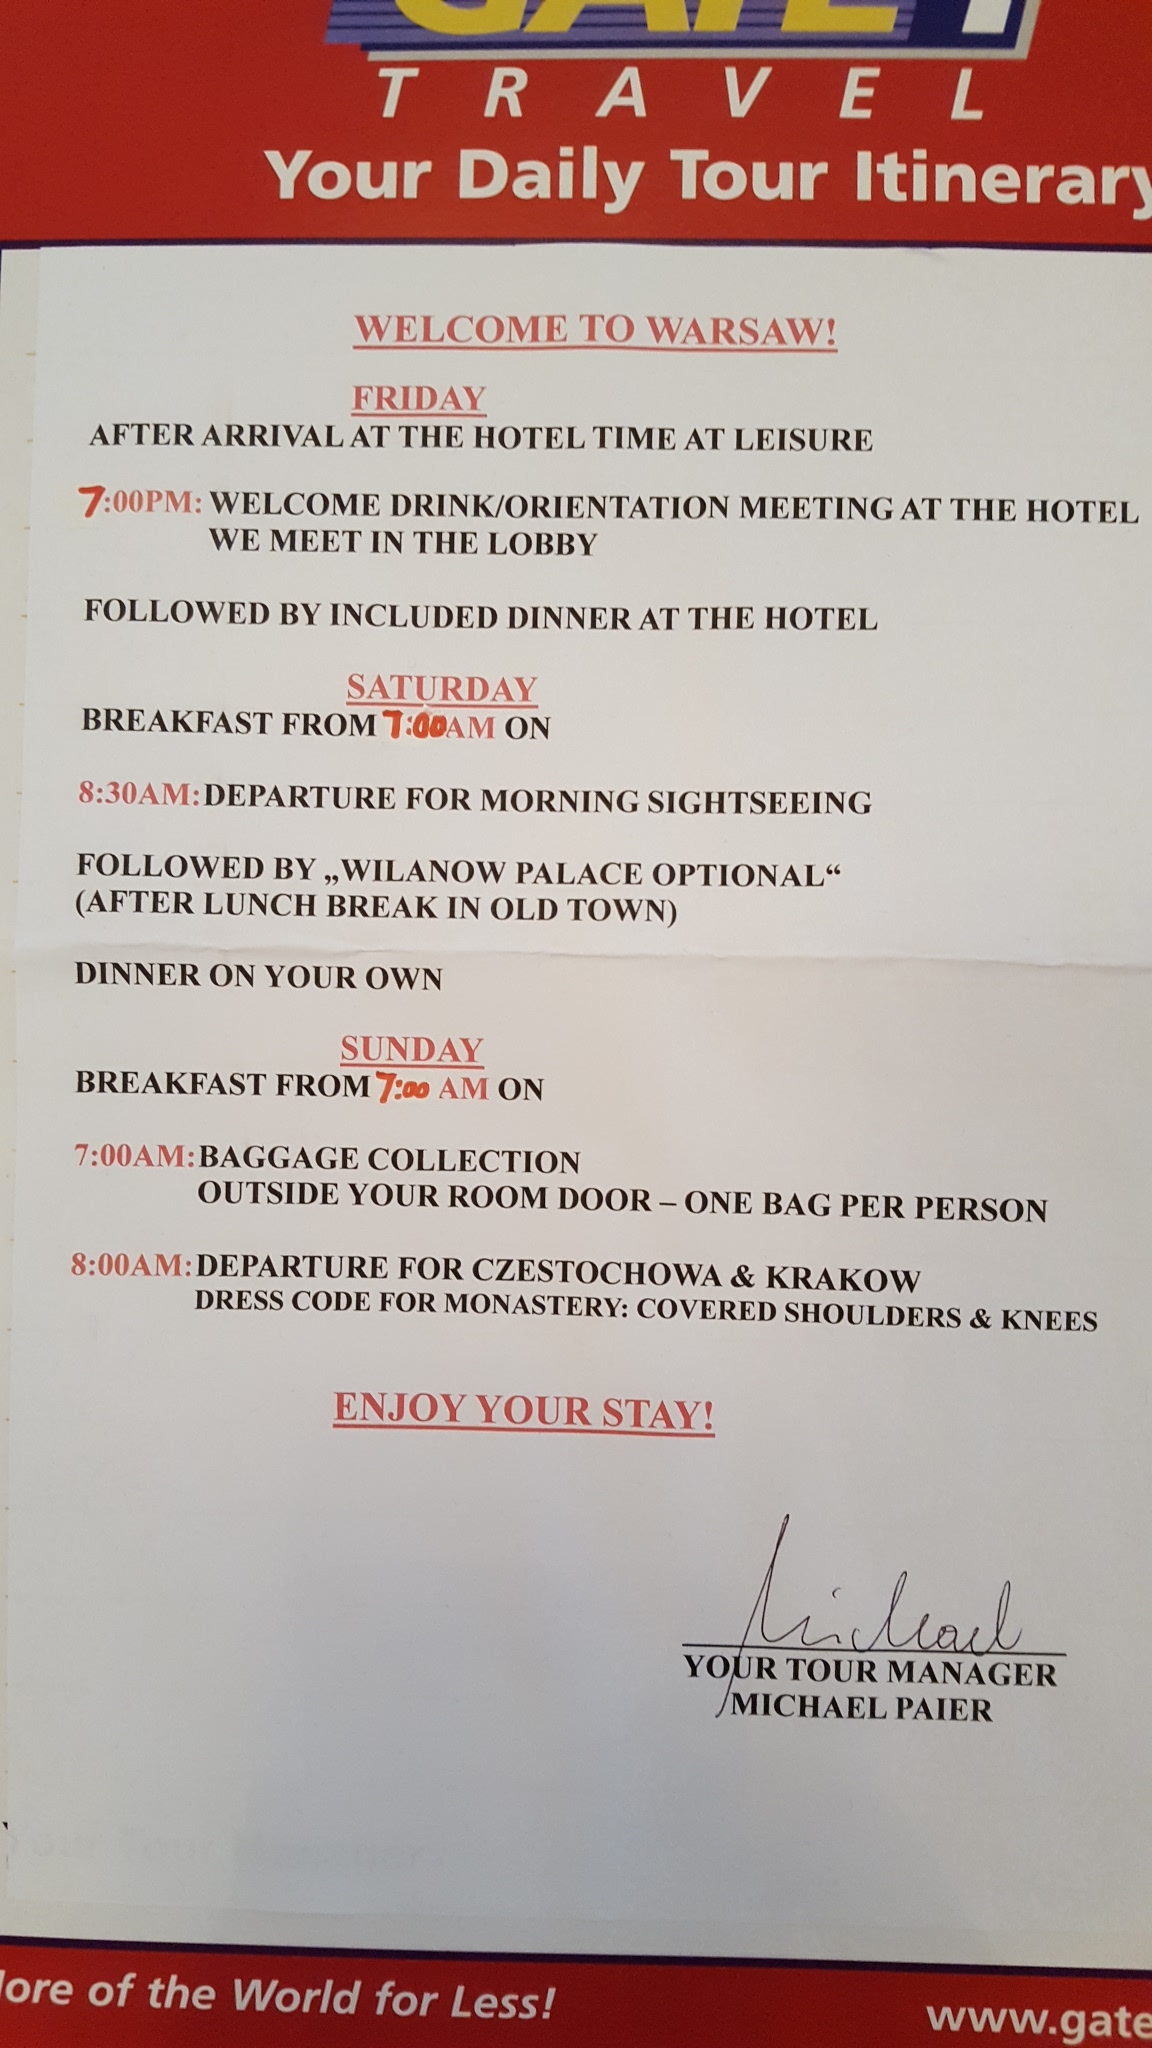 GATE 1
TRAVEL
Your Daily Tour Itinerary
WELCOME TO WARSAW!
FRIDAY
AFTER ARRIVAL AT THE HOTEL TIME AT LEISURE
7:00PM: WELCOME DRINK/ORIENTATION MEETING AT THE HOTEL
WE MEET IN THE LOBBY
FOLLOWED BY INCLUDED DINNER AT THE HOTEL
SATURDAY
BREAKFAST FROM 7:00AM ON
8:30AM: DEPARTURE FOR MORNING SIGHTSEEING
FOLLOWED BY „WILANOW PALACE OPTIONAL“
(AFTER LUNCH BREAK IN OLD TOWN)
DINNER ON YOUR OWN
SUNDAY
BREAKFAST FROM 7:00 AM ON
7:00AM: BAGGAGE COLLECTION
OUTSIDE YOUR ROOM DOOR – ONE BAG PER PERSON
8:00AM: DEPARTURE FOR CZESTOCHOWA & KRAKOW
DRESS CODE FOR MONASTERY: COVERED SHOULDERS & KNEES
ENJOY YOUR STAY!
Michael
YOUR TOUR MANAGER
MICHAEL PAIER
ore of the World for Less!
www.gate